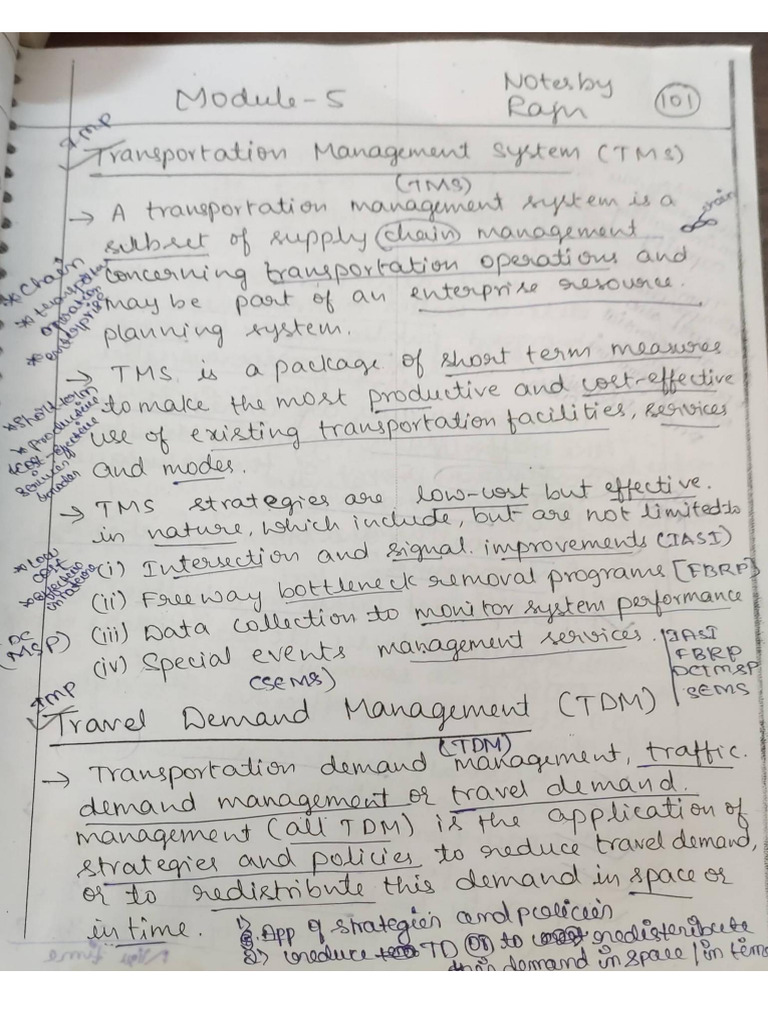 Module-5
Notes by
Raju
101
Imp
Transportation Management System (TMS)
(TMS)
→ A transportation management system is a
subset of supply (chain) management
chain
concerning transportation operations and
may be part of an enterprise resource.
planning system.
* chain
* transport
operation
* enterprise
→ TMS is a package of short term measures
to make the most productive and cost-effective
use of existing transportation facilities, services
and modes.
* short term
* productive
* cost-effective
services
→ TMS strategies are low-cost but effective.
in nature, which include, but are not limited to
* low
cost
* effective
in nature
(i) Intersection and signal improvements (IASI)
(ii) Freeway bottleneck removal programs [FBRP]
(iii) Data collection to monitor system performance
(DC
MSP)
(iv) Special events management services.
(SEMS)
IASI
FBRP
DCTMSP
SEMS
Imp
Travel Demand Management (TDM)
(TDM)
→ Transportation demand management, traffic.
demand management or travel demand.
management (all TDM) is the application of
strategies and policies to reduce travel demand,
or to redistribute this demand in space or
in time.
1) App of strategies and policies
2) reduce TD (or) to redistribute
this demand in space / in time